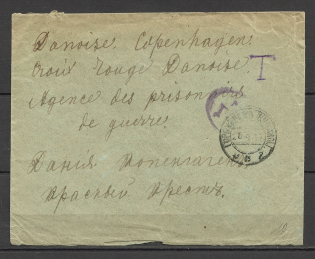 Danoise. Copenhagen.
Croix Rouge Danoise.
T
Agence des prisonniers
de guerre.
Данiя Копенгагенъ
Красный Крестъ.